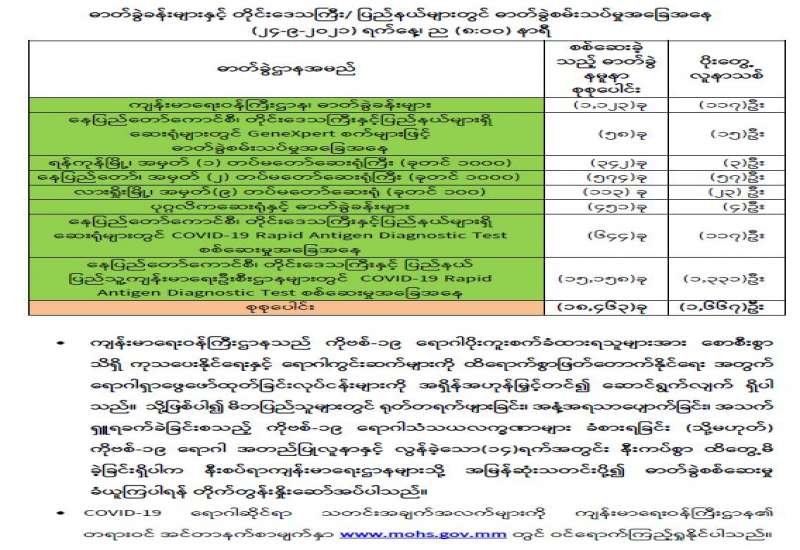 ဓာတ်ခွဲခန်းများနှင့် တိုင်းဒေသကြီး/ ပြည်နယ်များတွင် ဓာတ်ခွဲစမ်းသပ်မှုအခြေအနေ
(၂၄-၉-၂၀၂၁) ရက်နေ့၊ ည (၈:၀၀) နာရီ
ဓာတ်ခွဲဌာနအမည်
စစ်ဆေးခဲ့
သည့် ဓာတ်ခွဲ
နမူနာ
စုစုပေါင်း
ပိုးတွေ့
လူနာသစ်
ကျန်းမာရေးဝန်ကြီးဌာန၊ ဓာတ်ခွဲခန်းများ (၁,၁၂၃)ခု (၁၁၇)ဦး
နေပြည်တော်ကောင်စီ၊ တိုင်းဒေသကြီးနှင့်ပြည်နယ်များရှိ
ဆေးရုံများတွင် GeneXpert စက်များဖြင့်
ဓာတ်ခွဲစမ်းသပ်မှုအခြေအနေ
(၅၈)ခု (၁၅)ဦး
ရန်ကုန်မြို့၊ အမှတ် (၁) တပ်မတော်ဆေးရုံကြီး (ခုတင် ၁၀၀၀) (၃၄၂)ခု (၃)ဦး
နေပြည်တော်၊ အမှတ် (၂) တပ်မတော်ဆေးရုံကြီး (ခုတင် ၁၀၀၀) (၅၇၄)ခု (၅၇)ဦး
လားရှိုးမြို့၊ အမှတ်(၉) တပ်မတော်ဆေးရုံ (ခုတင် ၁၀၀) (၁၁၃) ခု (၂၃) ဦး
ပုဂ္ဂလိကဆေးရုံနှင့် ဓာတ်ခွဲခန်းများ (၄၅၁)ခု (၄)ဦး
နေပြည်တော်ကောင်စီ၊ တိုင်းဒေသကြီးနှင့်ပြည်နယ်များရှိ
ဆေးရုံများတွင် COVID-19 Rapid Antigen Diagnostic Test
စစ်ဆေးမှုအခြေအနေ
(၆၄၄)ခု (၁၁၇)ဦး
နေပြည်တော်ကောင်စီ၊ တိုင်းဒေသကြီးနှင့် ပြည်နယ်
ပြည်သူ့ကျန်းမာရေးဦးစီးဌာနများတွင် COVID-19 Rapid
Antigen Diagnostic Test စစ်ဆေးမှုအခြေအနေ
(၁၅,၁၅၈)ခု (၁,၃၃၁)ဦး
စုစုပေါင်း (၁၈,၄၆၃)ခု (၁,၆၆၇)ဦး
• ကျန်းမာရေးဝန်ကြီးဌာနသည် ကိုဗစ်-၁၉ ရောဂါပိုးကူးစက်ခံထားရသူများအား စောစီးစွာ
သိရှိ ကုသပေးနိုင်ရေးနှင့် ရောဂါကွင်းဆက်များကို ထိရောက်စွာဖြတ်တောက်နိုင်ရေး အတွက်
ရောဂါရှာဖွေဖော်ထုတ်ခြင်းလုပ်ငန်းများကို အရှိန်အဟုန်မြှင့်တင်၍ ဆောင်ရွက်လျက် ရှိပါ
သည်။ သို့ဖြစ်ပါ၍ မိဘပြည်သူများတွင် ရုတ်တရက်ဖျားခြင်း၊ အနံ့အရသာပျောက်ခြင်း၊ အသက်
ရှူရခက်ခဲခြင်းစသည့် ကိုဗစ်-၁၉ ရောဂါသံသယလက္ခဏာများ ခံစားရခြင်း (သို့မဟုတ်)
ကိုဗစ်-၁၉ ရောဂါ အတည်ပြုလူနာနှင့် လွန်ခဲ့သော(၁၄)ရက်အတွင်း နီးကပ်စွာ ထိတွေ့မိ
ခဲ့ခြင်းရှိပါက နီးစပ်ရာကျန်းမာရေးဌာနများသို့ အမြန်ဆုံးသတင်းပို့၍ ဓာတ်ခွဲစစ်ဆေးမှု
ခံယူကြပါရန် တိုက်တွန်းနှိုးဆော်အပ်ပါသည်။
• COVID-19 ရောဂါဆိုင်ရာ သတင်းအချက်အလက်များကို ကျန်းမာရေးဝန်ကြီးဌာန၏
တရားဝင် အင်တာနက်စာမျက်နှာ www.mohs.gov.mm တွင် ဝင်ရောက်ကြည့်ရှုနိုင်ပါသည်။